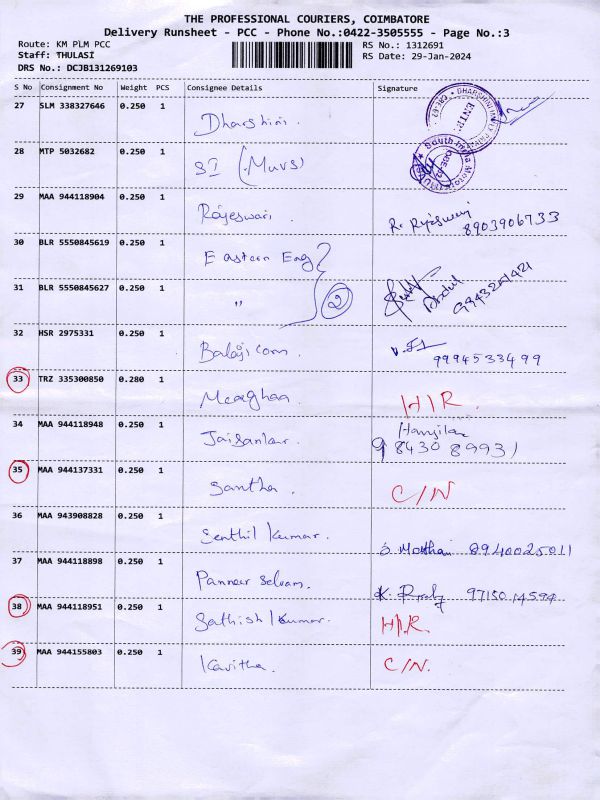 THE PROFESSIONAL COURIERS, COIMBATORE
Delivery Runsheet - PCC - Phone No.:0422-3505555 - Page No.:3
Route: KM PLM PCC RS No.: 1312691
Staff: THULASI RS Date: 29-Jan-2024
DRS No.: DCJB131269103
S No Consignment No Weight PCS Consignee Details Signature
27 SLM 338327646 0.250 1 Dharshini.
28 MTP 5032682 0.250 1 SI (Muvs)
South India Motors
29 MAA 944118904 0.250 1 Rajeswari. 8903906733
30 BLR 5550845619 0.250 1 Eastern Eng
31 BLR 5550845627 0.250 1 " 2 Abdul
32 HSR 2975331 0.250 1 Balaji com. 9994533499
33 TRZ 335300850 0.280 1 Meaghaa H/R.
34 MAA 944118948 0.250 1 Jaisankar. 9843089931
35 MAA 944137331 0.250 1 Santha. C/N
36 MAA 943908828 0.250 1 Senthil Kumar. 8940025011
37 MAA 944118898 0.250 1 Panneer Selvam.
38 MAA 944118951 0.250 1 Sathish Kumar. H/R.
39 MAA 944155803 0.250 1 Kavitha. C/N.